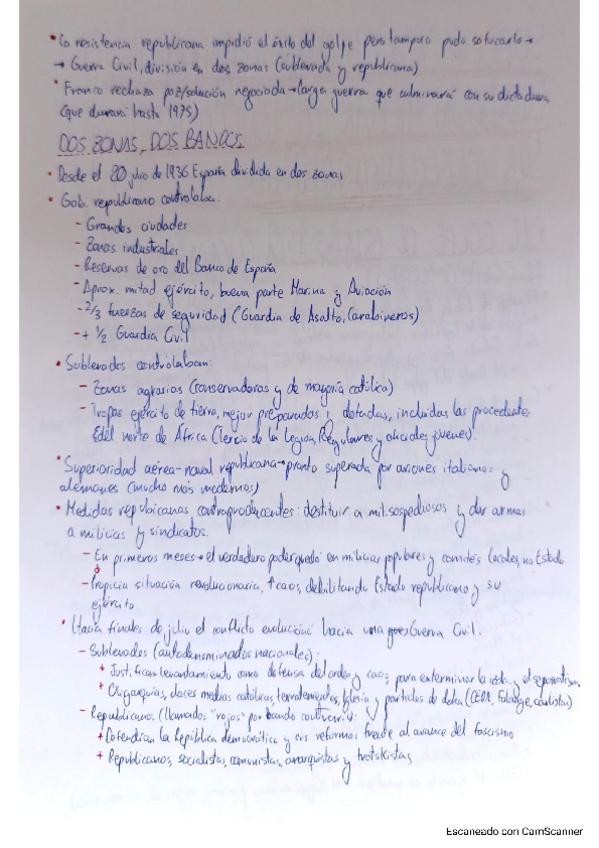 • La resistencia republicana impidió el éxito del golpe pero tampoco pudo sofocarlo →
→ Guerra Civil, división en dos zonas (sublevada y republicana)
• Franco rechaza paz/solución negociada → larga guerra que culminará con su dictadura
(que durará hasta 1975)
DOS ZONAS, DOS BANDOS
• Desde el 20 julio de 1936 España dividida en dos zonas
• Gob. republicano controlaba:
- Grandes ciudades
- Zonas industriales
- Reservas de oro del Banco de España
- Aprox. mitad ejército, buena parte Marina y Aviación
- 2/3 fuerzas de seguridad (Guardia de Asalto, Carabineros)
- + 1/2 Guardia Civil
• Sublevados controlaban:
- Zonas agrarias (conservadoras y de mayoría católica)
- Tropas ejército de tierra, mejor preparadas y dotadas, incluidas las procedentes
del norte de África (Tercio de la Legión, Regulares y oficiales jóvenes).
• Superioridad aérea-naval republicana → pronto superada por aviones italianos y
alemanes (mucho más modernos)
• Medidas republicanas contraproducentes: destituir a mil. sospechosos y dar armas
a milicias y sindicatos.
- En primeros meses → el verdadero poder quedó en milicias populares y comités locales, no Estado
- Propicia situación revolucionaria, ↑ caos, debilitando Estado republicano y su
ejército
• Hacia finales de julio el conflicto evolucionó hacia una Guerra Civil.
- Sublevados (autodenominados nacionales):
+ Justifican levantamiento como defensa del orden y caos, para exterminar la izda. y el separatismo
+ Oligarquías, clases medias católicas, terratenientes, Iglesia y partidos de dcha (CEDA, Falange, carlistas)
- Republicano. (llamados "rojos" por bando contrario):
+ Defendían la República democrática y sus reformas frente al avance del fascismo
+ Republicanos, socialistas, comunistas, anarquistas y trotskistas
Escaneado con CamScanner